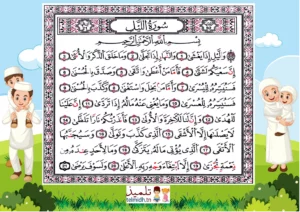 سُورَةُ اللَّيْلِ
بِسْمِ اللَّهِ الرَّحْمَٰنِ الرَّحِيمِ
وَاللَّيْلِ إِذَا يَغْشَىٰ ١ وَالنَّهَارِ إِذَا تَجَلَّىٰ ٢ وَمَا خَلَقَ الذَّكَرَ وَالْأُنثَىٰ ٣
إِنَّ سَعْيَكُمْ لَشَتَّىٰ ٤ فَأَمَّا مَنْ أَعْطَىٰ وَاتَّقَىٰ ٥ وَصَدَّقَ بِالْحُسْنَىٰ ٦
فَسَنُيَسِّرُهُ لِلْيُسْرَىٰ ٧ وَأَمَّا مَن بَخِلَ وَاسْتَغْنَىٰ ٨ وَكَذَّبَ بِالْحُسْنَىٰ ٩
فَسَنُيَسِّرُهُ لِلْعُسْرَىٰ ١٠ وَمَا يُغْنِي عَنْهُ مَالُهُ إِذَا تَرَدَّىٰ ١١ إِنَّ عَلَيْنَا
لَلْهُدَىٰ ١٢ وَإِنَّ لَنَا لَلْآخِرَةَ وَالْأُولَىٰ ١٣ فَأَنذَرْتُكُمْ نَارًا تَلَظَّىٰ ١٤
لَا يَصْلَاهَا إِلَّا الْأَشْقَى ١٥ الَّذِي كَذَّبَ وَتَوَلَّىٰ ١٦ وَسَيُجَنَّبُهَا
الْأَتْقَى ١٧ الَّذِي يُؤْتِي مَالَهُ يَتَزَكَّىٰ ١٨ وَمَا لِأَحَدٍ عِندَهُ مِن
نِّعْمَةٍ تُجْزَىٰ ١٩ إِلَّا ابْتِغَاءَ وَجْهِ رَبِّهِ الْأَعْلَىٰ ٢٠ وَلَسَوْفَ يَرْضَىٰ ٢١
تلميذ
telmidh.tn